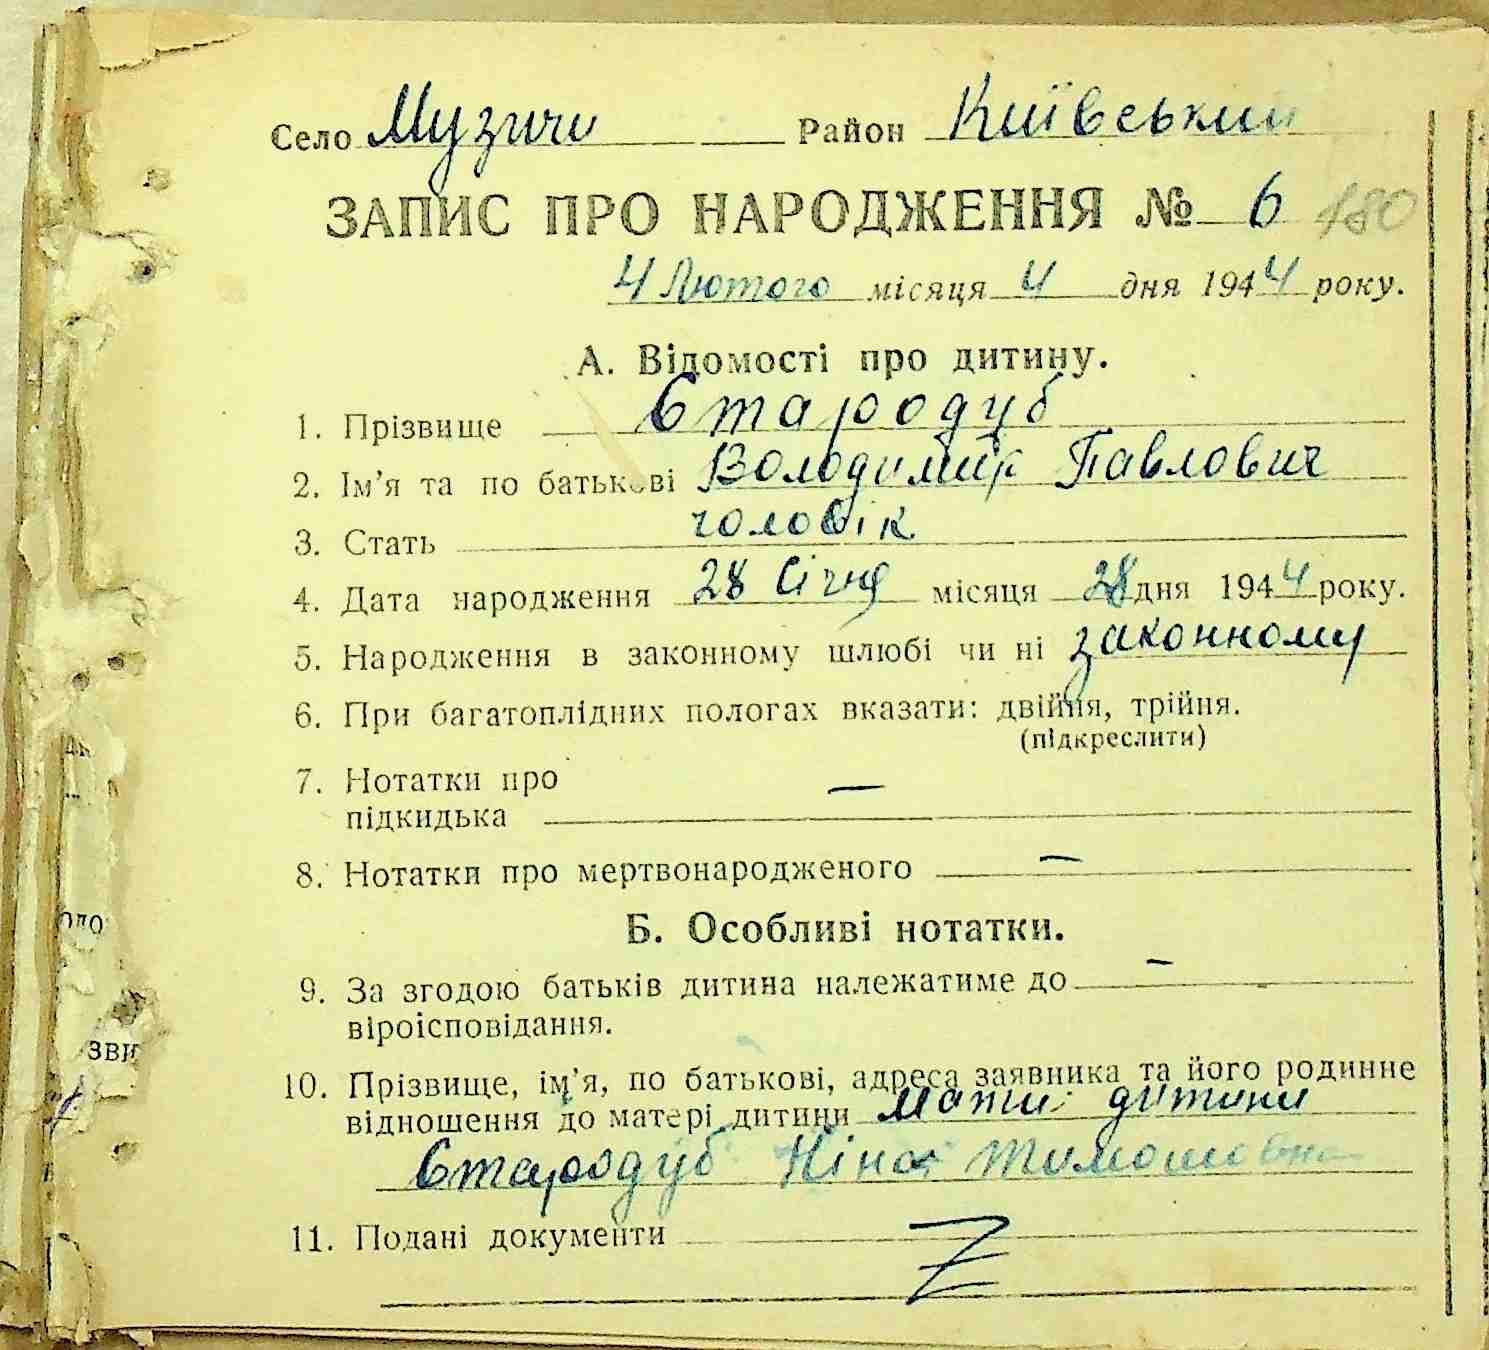 Село Музичи Район Київський
ЗАПИС ПРО НАРОДЖЕННЯ № 6 180
4 Лютого місяця 4 дня 1944 року.
А. Відомості про дитину.
1. Прізвище Стародуб
2. Ім'я та по батькові Володимир Павлович
3. Стать чоловік
4. Дата народження 28 Січня місяця 28 дня 1944 року.
5. Народження в законному шлюбі чи ні законному
6. При багатоплідних пологах вказати: двійня, трійня.
(підкреслити)
7. Нотатки про
підкидька —
8. Нотатки про мертвонародженого —
Б. Особливі нотатки.
9. За згодою батьків дитина належатиме до —
віроісповідання.
10. Прізвище, ім'я, по батькові, адреса заявника та його родинне
відношення до матері дитини Мати дитини
Стародуб Ніна Тимошовна
11. Подані документи
оло
зви